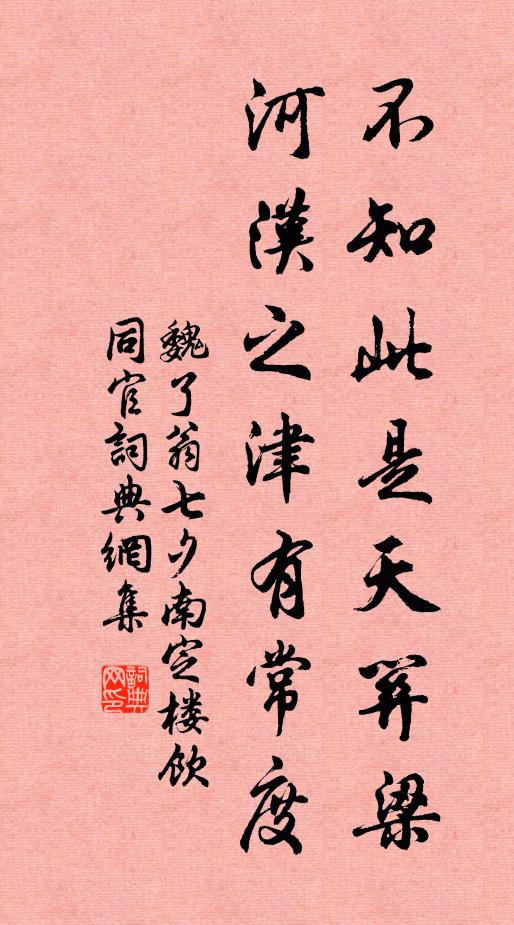 不知此是天關梁
河漢之津有常度
魏了翁七夕南定楼飲
同官詞典網集
詞典網印